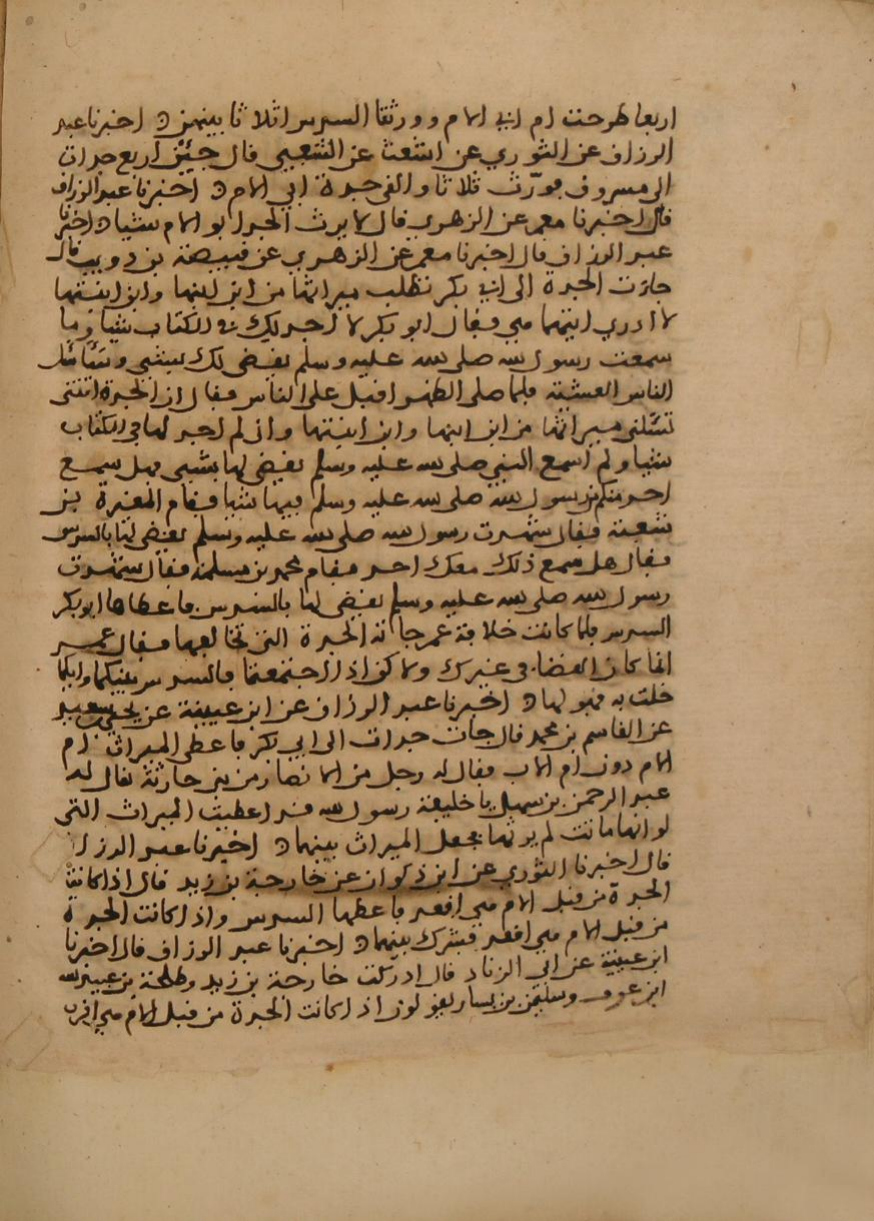 اربعا طرحت ام ابي الام وورثتا السدس اثلاثا بينهن ه اخبرنا عبد
الرزاق عن الثوري عن اشعث عن الشعبي قال جئن اربع جدات
الى مسروق فورث ثلاثا والغى جدة ابي الام ه اخبرنا عبد الرزاق
قال اخبرنا معمر عن الزهري قال لا يرث الجد ابو الام شيا ه اخبرنا
عبد الرزاق قال اخبرنا معمر عن الزهري عن قبيصة بن ذويب قال
جات الجدة الى ابي بكر تطلب ميراثها من ابن ابنها وابن ابنتها
لا ادري ايتهما هي فقال ابو بكر لا اجد لك في الكتاب شيا وما
سمعت رسول الله صلى الله عليه وسلم يقضي لك بشي وسأسل
الناس العشية فلما صلى الظهر اقبل على الناس فقال ان الجدة اتتني
تسلني ميراثها من ابن ابنها وابن ابنتها واني لم اجد لها في الكتاب
شيا ولم اسمع النبي صلى الله عليه وسلم يقضي لها بشي فهل سمع
احد منكم من رسول الله صلى الله عليه وسلم فيها شيا فقام المغيرة بن
شعبة فقال شهدت رسول الله صلى الله عليه وسلم يقضي لها بالسدس
فقال هل سمع ذلك معك احد فقام محمد بن مسلمة فقال شهدت
رسول الله صلى الله عليه وسلم يقضي لها بالسدس فاعطاها ابو بكر
السدس فلما كانت خلافة عمر جاته الجدة التي تخالفها فقال عمر
انما كان القضا في غيرك ولكن اذا اجتمعتما فالسدس بينكما وايكما
خلت به فهو لها ه اخبرنا عبد الرزاق عن ابن عيينة عن يحيى بن سعيد
عن القاسم بن محمد قال جات جدات الى ابي بكر فاعطى الميراث ام
الام دون ام الاب فقال له رجل من الانصار من بني حارثة يقال له
عبد الرحمن بن سهل يا خليفة رسول الله قد اعطيت الميراث التي
لو انها ماتت لم يرثها فجعل الميراث بينهما ه اخبرنا عبد الرزاق
قال اخبرنا الثوري عن ابن ذكوان عن خارجة بن زيد قال اذا كانت
الجدة من قبل الام هي اقعد فاعطها السدس واذا كانت الجدة
من قبل الام هي اقعد فشرك بينهما ه اخبرنا عبد الرزاق قال اخبرنا
ابن عيينة عن ابي الزناد قال ادركت خارجة بن زيد وطلحة بن عبيد الله
ابن عوف وسليمن بن يسار يقولون اذا كانت الجدة من قبل الام هي اقرب